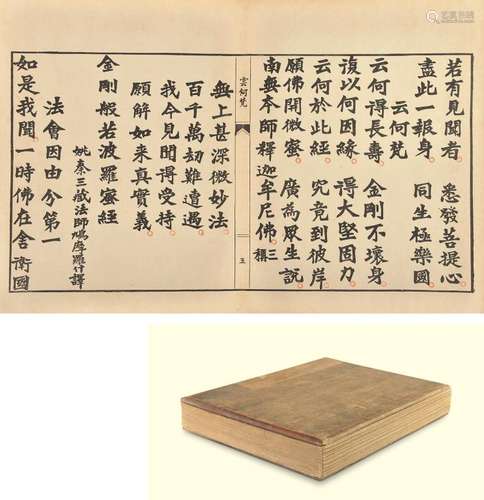 若有見聞者　悉發菩提心
盡此一報身　同生極樂國
云何梵
云何得長壽　金剛不壞身
復以何因緣　得大堅固力
云何於此經　究竟到彼岸
願佛開微蜜　廣為眾生說
南無本師釋迦牟尼佛 三稱
雲何梵
五
無上甚深微妙法
百千萬劫難遭遇
我今見聞得受持
願解如来真實義
金剛般若波羅蜜經
姚秦三藏法師鳩摩羅什譯
法會因由分第一
如是我聞一時佛在舍衛國